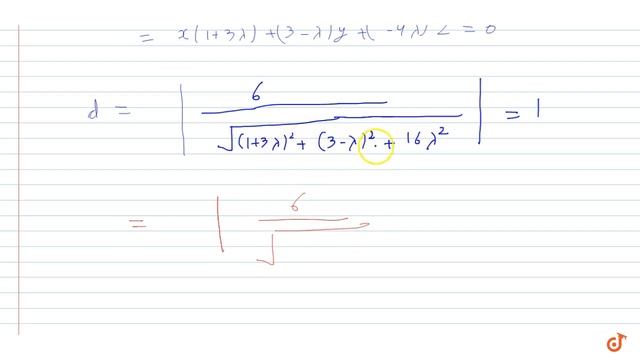 = x(1+3λ) + (3-λ)y + (-4λ) z = 0
d = | 6 / √((1+3λ)² + (3-λ)² + 16λ²) | = 1
= | 6 / √